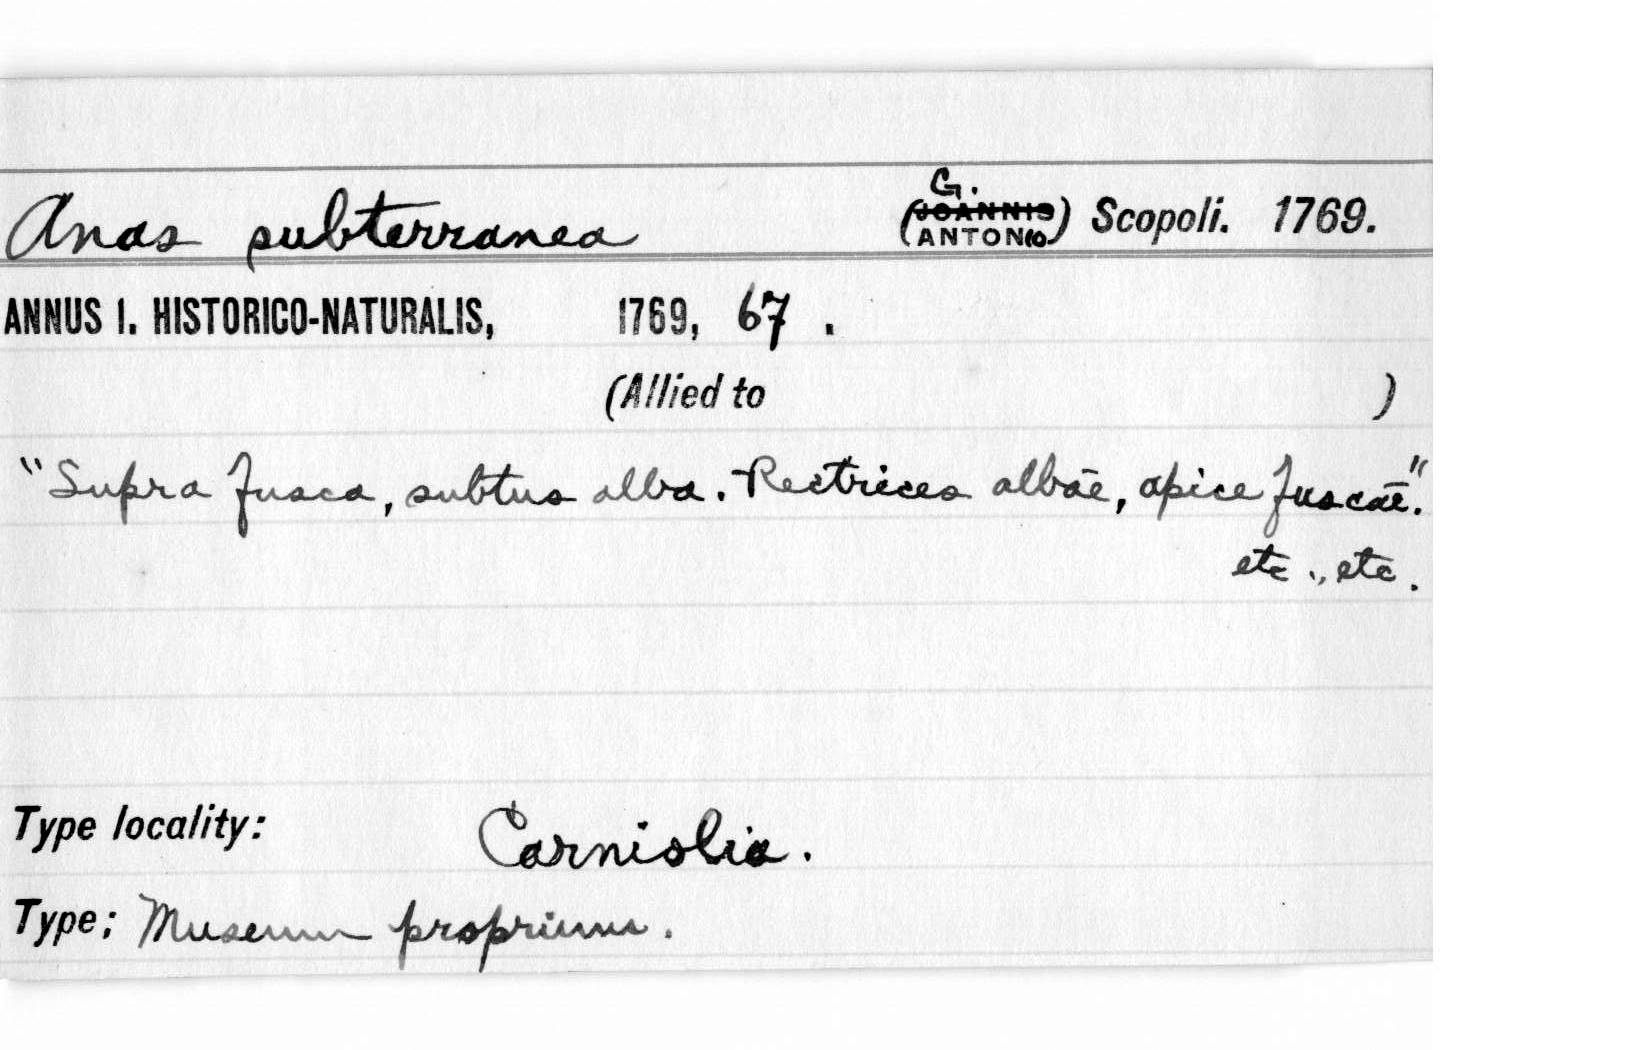 Anas subterranea (G. JOANNIS ANTONIO) Scopoli. 1769.
ANNUS I. HISTORICO-NATURALIS, 1769, 67 .
(Allied to )
"Supra fusca, subtus alba. Rectrices albāē, apice fuscāē."
etc., etc.
Type locality: Carniolia.
Type; Museum proprium.